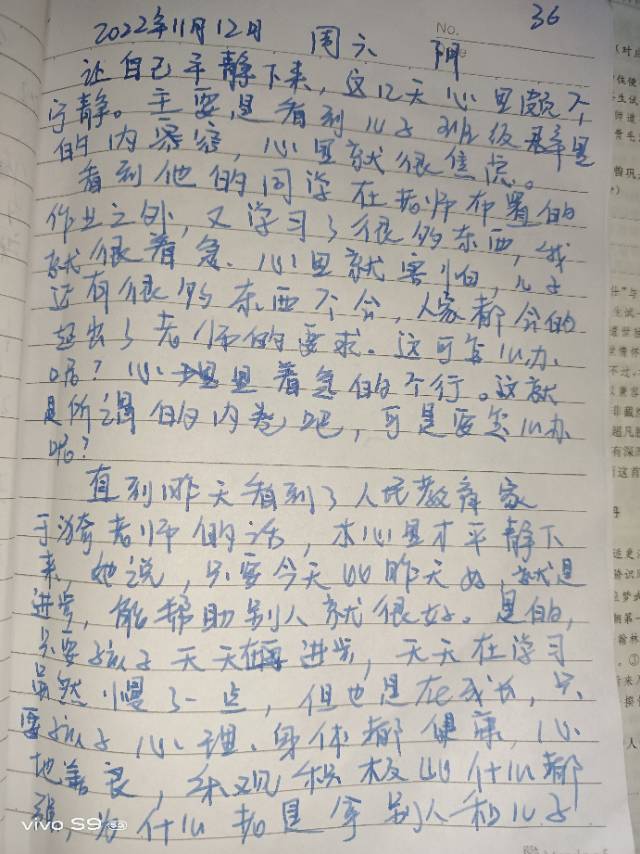 No.
36
2022年11月12日 周六 阴
让自己平静下来，这几天心里颇不
宁静。主要是看到儿子班级群里
的内容，心里就很焦虑。
看到他的同学在老师布置的
作业之外，又学习了很多东西，我
就很着急、心里就害怕，儿子
还有很多东西不会，人家都会的
超出了老师的要求。这可怎么办
呢？心里着急的不行。这就
是所谓的内卷吧，可是要怎么办
呢？
直到昨天看到了人民教育家
于漪老师的话，本心里才平静下
来，她说，只要今天比昨天好，就是
进步，能帮助别人就很好。是的，
只要孩子天天在进步，天天在学习
虽然慢了一点，但也是在成长，只
要孩子心理、身体都健康，心
地善良，乐观积极比什么都
强，为什么老是拿别人和儿子
vivo S9